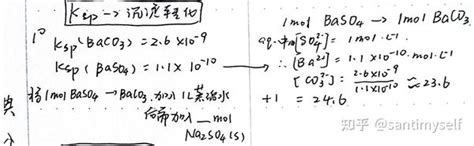 Ksp → 沉淀转化
1° Ksp(BaCO₃) = 2.6×10⁻⁹
Ksp(BaSO₄) = 1.1×10⁻¹⁰
将1mol BaSO₄ → BaCO₃. 加入1L蒸馏水
后需加入__mol
Na₂SO₄(s)
1mol BaSO₄ → 1mol BaCO₃
aq.中[SO₄²⁻] = 1mol·L⁻¹
∴ [Ba²⁺] = 1.1×10⁻¹⁰ mol·L⁻¹
[CO₃²⁻] = 2.6×10⁻⁹/1.1×10⁻¹⁰ ≈ 23.6
+1 = 24.6
典
知乎 @santimyself